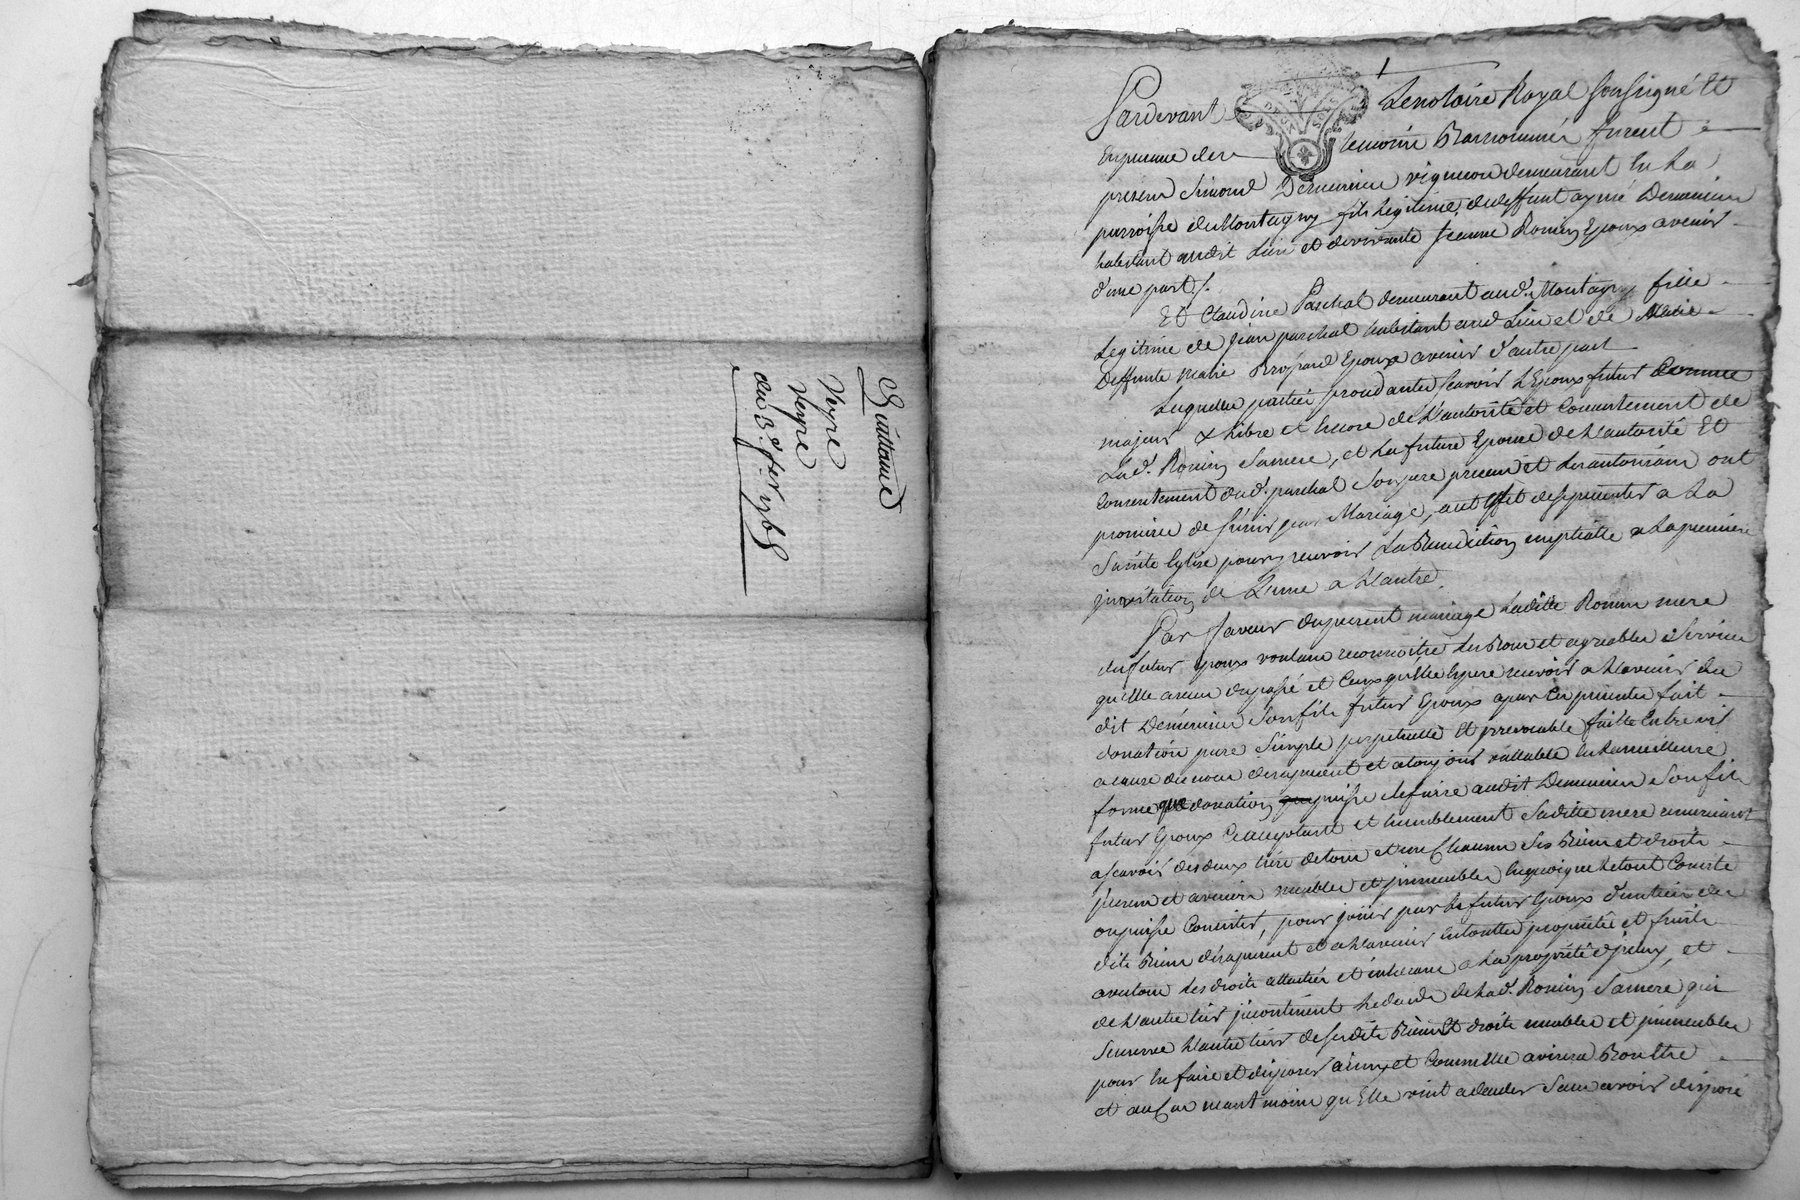 Quittance
Veyre
Veyre
du 3e. fer 1768
1
Pardevant Lenotaire Royal Soussigné Et
En presence des temoins Bas nommés furent
presens Simond Demeurieu vigneron demeurant En La
parroisse de Montagny fils legitime de deffunt aymé Demeurieu
habitant audit Lieu et de vivante Jeanne Romin Epoux avenir
d'une part /.
Et Claudine Paschal demeurant aud. Montagny fille
Legitime de Jean paschal habitant aud Lieu et de
Deffunte marie Epouse avenir d'autre part
Lesquelles parties procedantes scavoir L'Epoux futur Comme
majeur & Libre et Encore de L'autorité et Consentement de
Lad. Romin Sa mere, et La future Epouse de L'autorité Et
Consentement dud. paschal Son pere present et Les autorisans ont
promis de S'unir par Mariage, a cet Effet de se presenter a La
Sainte Eglise pour y recevoir La Benediction nuptialle a La premiere
Invitation de L'une a L'autre
Par faveur du present mariage Laditte Romin mere
du futur Epoux voulant reconnoitre Les Bons et agreables Services
qu'elle a receu du passé et Ceux qu'elle Espere recevoir a L'avenir du
dit Demeurieu Son fils futur Epoux a par Ces presentes fait
donation pure Simple perpetuelle Et irrevocable faitte Entre vifs
a cause des noces des a present et a toujours vallable En La meilleure
forme que donation puisse Se faire audit Demeurieu Son fils
futur Epoux acceptant et humblement Saditte mere remerciant
a scavoir des deux tiers de tous et un Chacun Ses Biens et droits
presens et avenirs meubles et immeubles En quoi que Le tout Consiste
ou puisse Consister, pour jouir par Le futur Epoux d'un tiers des
dits Biens des a present et a L'avenir En toutte propriété et fruits
avec tous Les droits attachés et inherans a La propriété d'iceux, et
de L'autre tiers incontinent Le decès de Lad. Romin Sa mere qui
Se reserve L'autre tiers de Sesdits Biens Et droits meubles et immeubles
pour En faire et disposer ainsy et Comme Elle avisera Bon Etre
et au Cas neantmoins qu'Elle vint a deceder Sans avoir disposé